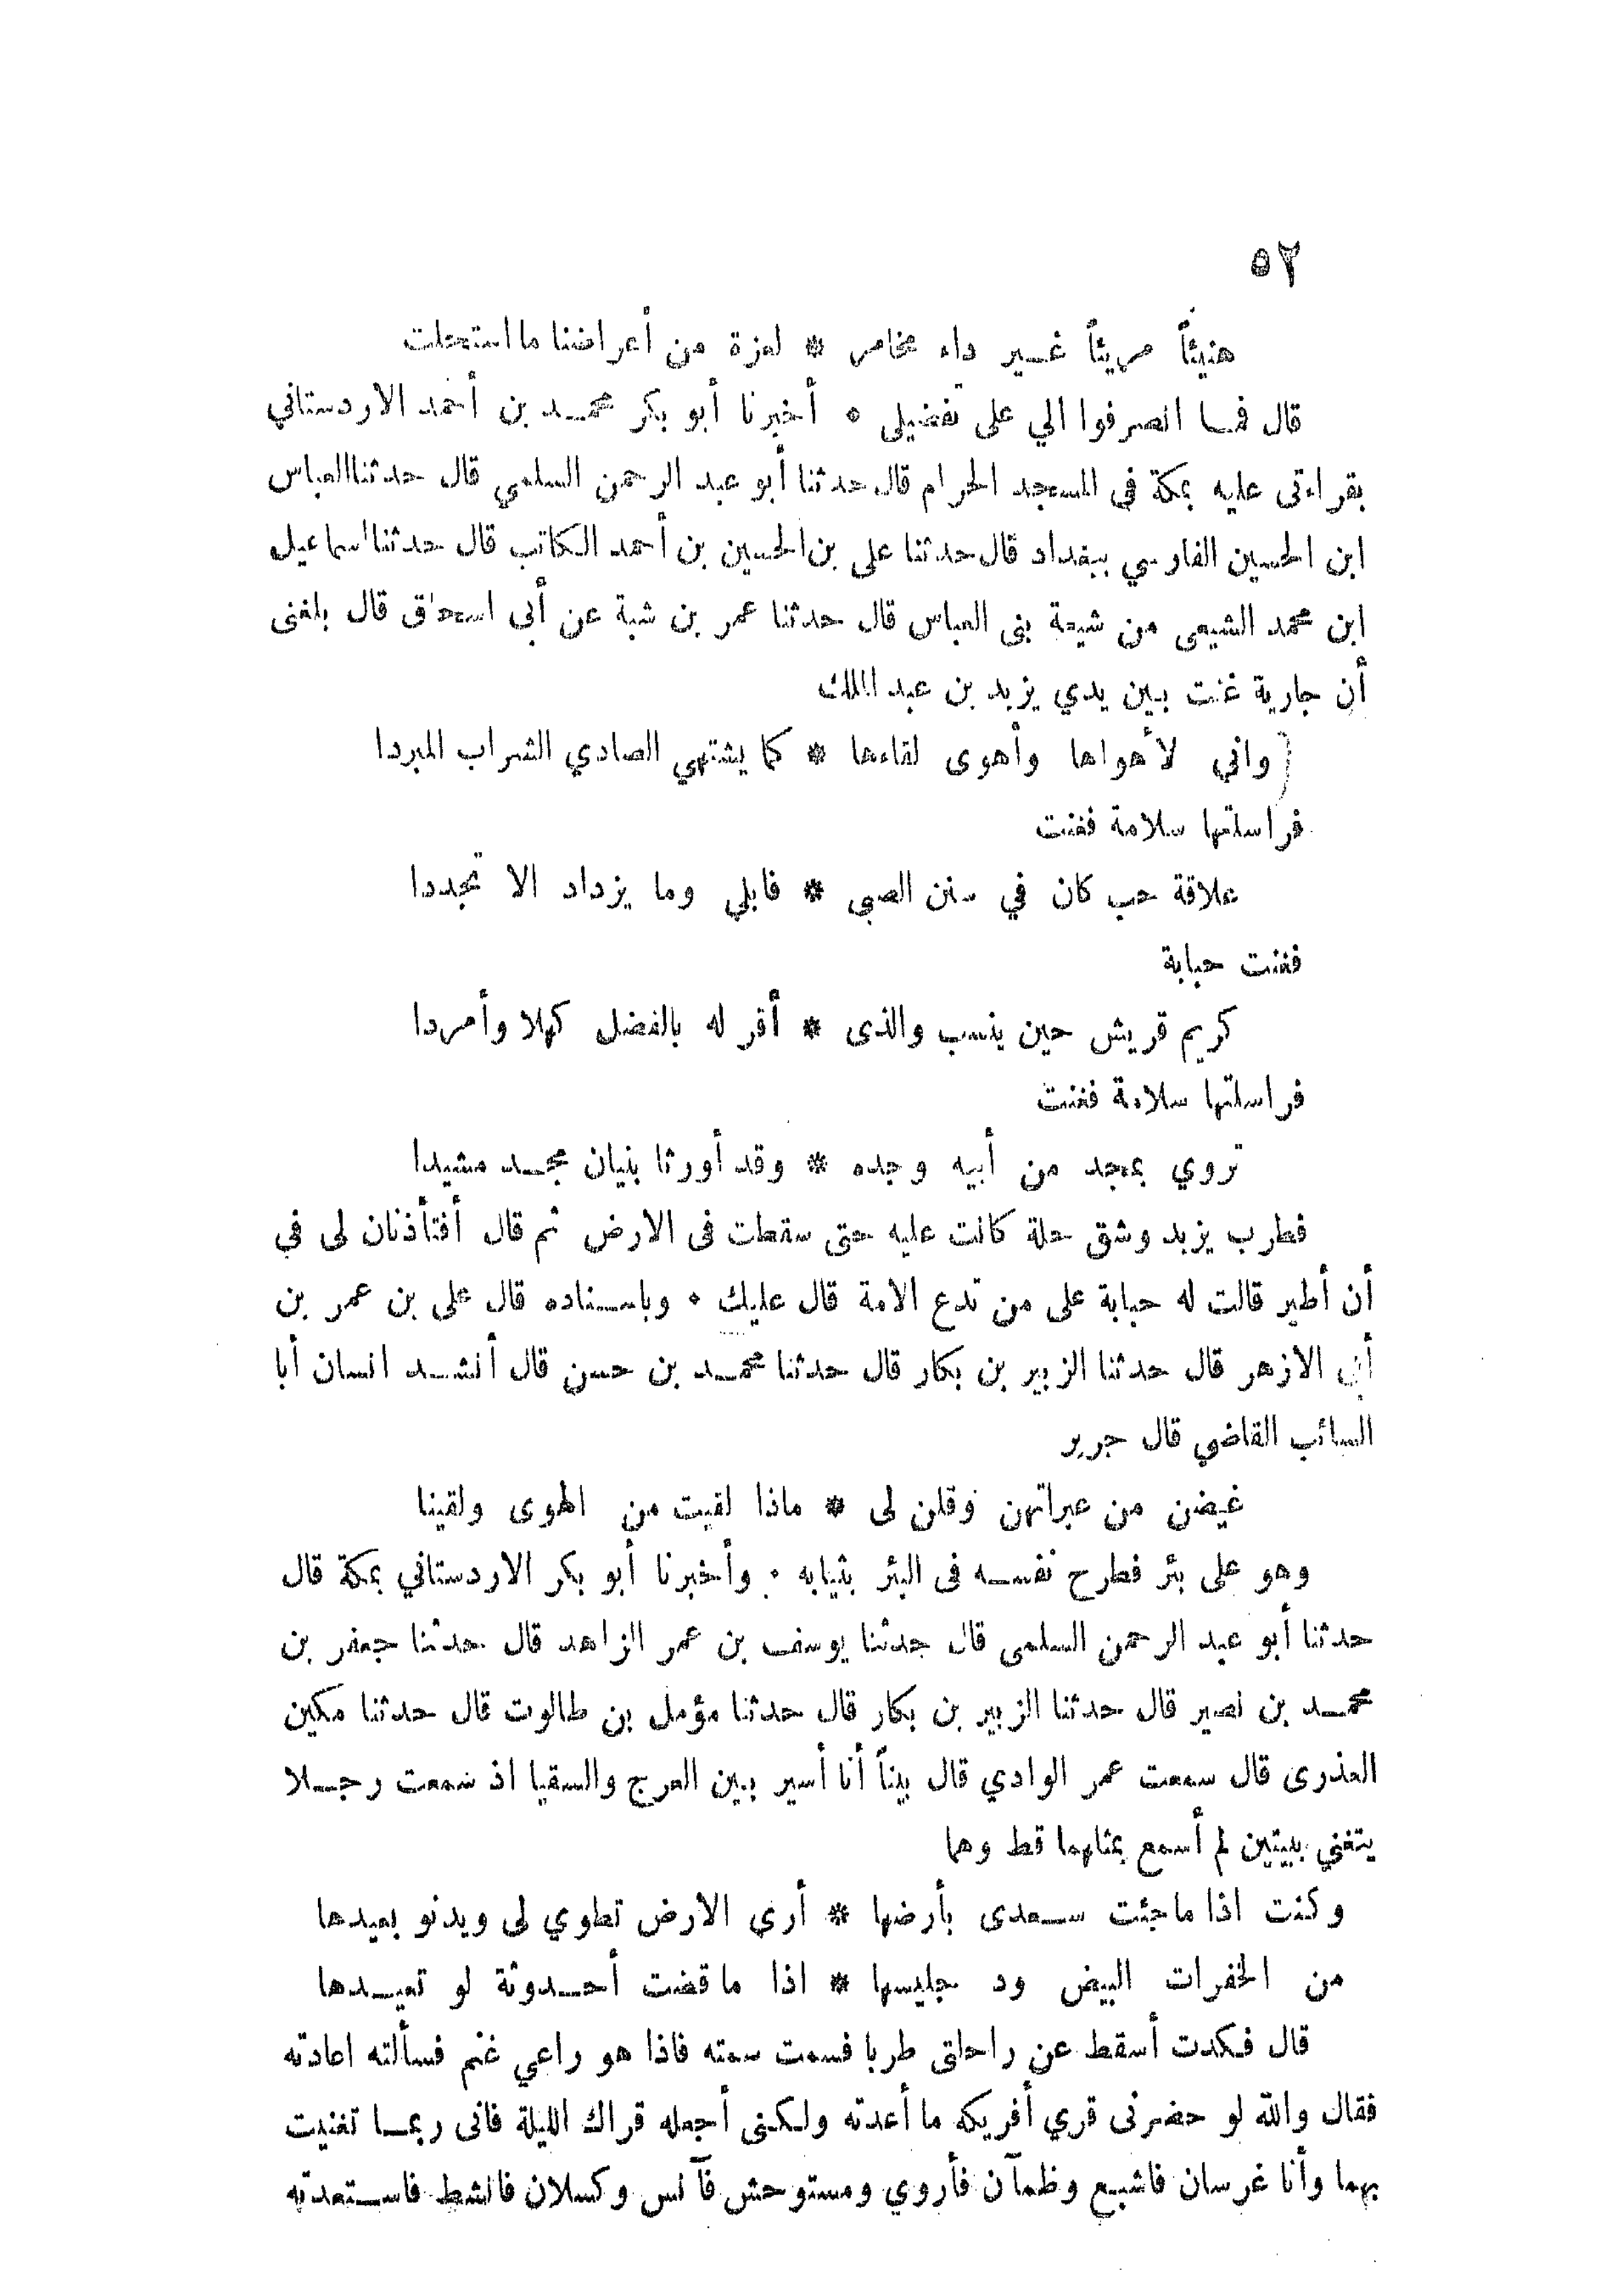 ٥٢
هنيئاً مريئاً غير داء مخامر * لعزة من أعراضنا ما استحلت
قال فما انصرفوا الي على تفضيلى ٠ أخبرنا أبو بكر محمد بن أحمد الاردستاني
بقراءتى عليه بمكة فى المسجد الحرام قال حدثنا أبو عبد الرحمن السلمي قال حدثنا العباس
ابن الحسين الفارسي ببغداد قال حدثنا على بن الحسين بن أحمد الكاتب قال حدثنا اسماعيل
ابن محمد الشيعى من شيعة بنى العباس قال حدثنا عمر بن شبة عن أبى اسحاق قال بلغنى
أن جارية غنت بين يدي يزيد بن عبد الملك
واني لأهواها وأهوى لقاءها * كما يشتهي الصادي الشراب المبردا
فراسلتها سلامة فغنت
علاقة حب كان في سنن الصبى * فابلي وما يزداد الا تجددا
فغنت حبابة
كريم قريش حين ينسب والذى * أقر له بالفضل كهلا وأمردا
فراسلتها سلامة فغنت
تروي بمجد من أبيه وجده * وقد أورثا بنيان مجد مشيدا
فطرب يزيد وشق حلة كانت عليه حتى سقطت فى الارض ثم قال أفتأذنان لى في
أن أطير قالت له حبابة على من تدع الامة قال عليك ٠ وباسناده قال على بن عمر بن
أبى الازهر قال حدثنا الزبير بن بكار قال حدثنا محمد بن حسن قال أنشد انسان أبا
السائب القاضي قال جرير
غيضن من عبراتهن وقلن لى * ماذا لقيت من الهوى ولقينا
وهو على بئر فطرح نفسه فى البئر بثيابه ٠ وأخبرنا أبو بكر الاردستاني بمكة قال
حدثنا أبو عبد الرحمن السلمى قال حدثنا يوسف بن عمر الزاهد قال حدثنا جعفر بن
محمد بن نصير قال حدثنا الزبير بن بكار قال حدثنا مؤمل بن طالوت قال حدثنا مكين
العذرى قال سمعت عمر الوادي قال بيناً أنا أسير بين العرج والسقيا اذ سمعت رجلا
يتغني ببيتين لم أسمع بمثلهما قط وهما
وكنت اذا ما جئت سعدى بأرضها * أرى الارض تطوي لى ويدنو بعيدها
من الخفرات البيض ود جليسها * اذا ما قضت أحدوثة لو تعيدها
قال فكدت أسقط عن راحلتى طربا فسمت سمته فاذا هو راعي غنم فسألته اعادته
فقال والله لو حضرنى قري أفريكه ما أعدته ولكنى أجعله قراك الليلة فانى ربما تغنيت
بهما وأنا غرسان فاشبع وظمآن فأروي ومستوحش فآنس وكسلان فانشط فاستعدته